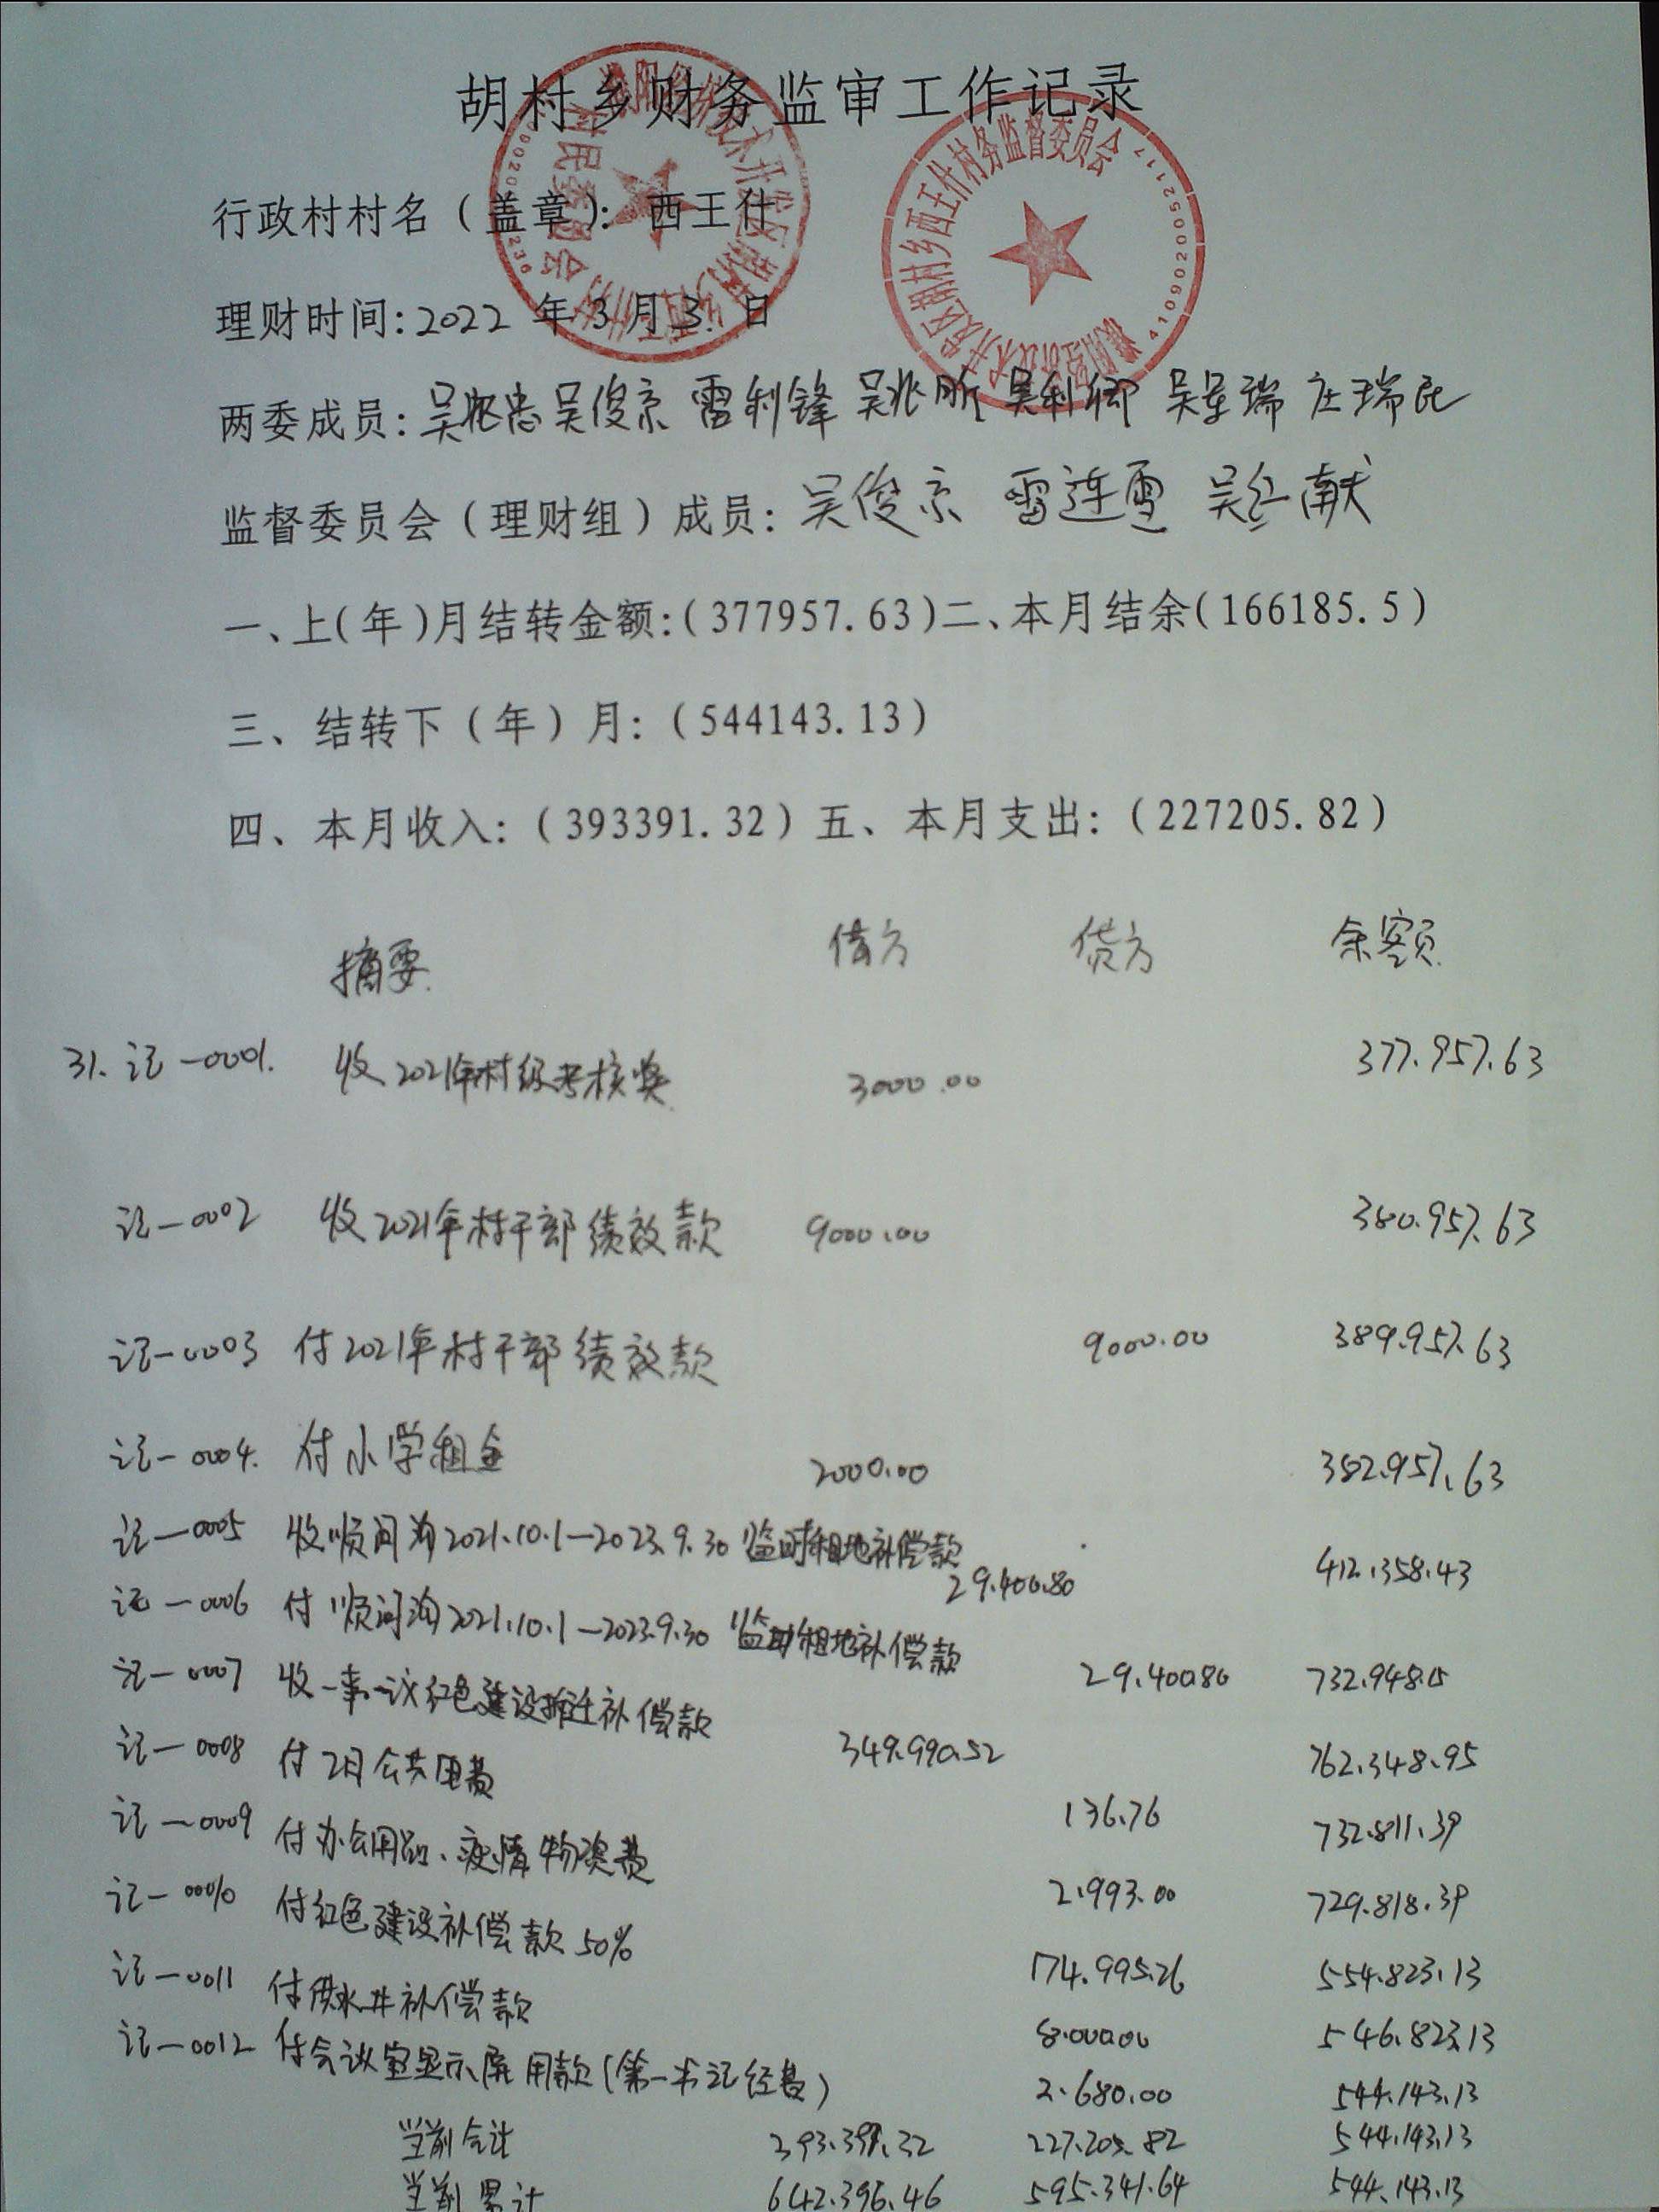 胡村乡财务监审工作记录
行政村村名（盖章）：西王什
理财时间:2022 年3月3 日
两委成员:吴俊京 雷利锋 吴兆昕 吴利卿
监督委员会（理财组）成员：吴俊京 雷连 吴红献
一、上(年)月结转金额:(377957.63)二、本月结余(166185.5)
三、结转下（年）月:（544143.13）
四、本月收入:（393391.32）五、本月支出:（227205.82）
摘要 借方 贷方 余额
31. 记—0001. 收2021年村级考核奖 3000.00 377.957.63
记—0002 收2021年村干部绩效款 9000.00 380.957.63
记—0003 付2021年村干部绩效款 9000.00 389.957.63
记—0004. 付小学租金 2000.00 382.957.63
记—0005 收顺河沟2021.10.1—2023.9.30临时租地补偿款 29.400.80 412.358.43
记—0006 付顺河沟2021.10.1—2023.9.30临时租地补偿款 29.400.80 732.948.15
记—0007 收一事一议红色建设拆迁补偿款 349.990.52 762.348.95
记—0008 付2月公共电费 136.76 732.811.39
记—0009 付办公用品、疫情物资费 2.993.00 729.818.39
记—00010 付红色建设补偿款50% 174.995.26 554.823.13
记—0011 付供水井补偿款 8.000.00 546.823.13
记—0012 付会议室显示屏用款(第一书记经费) 2.680.00 544.143.13
当前合计 393.391.32 227.205.82 544.143.13
当前累计 642.396.46 595.341.64 544.143.13
西王什村务监督委员会
4109020052117